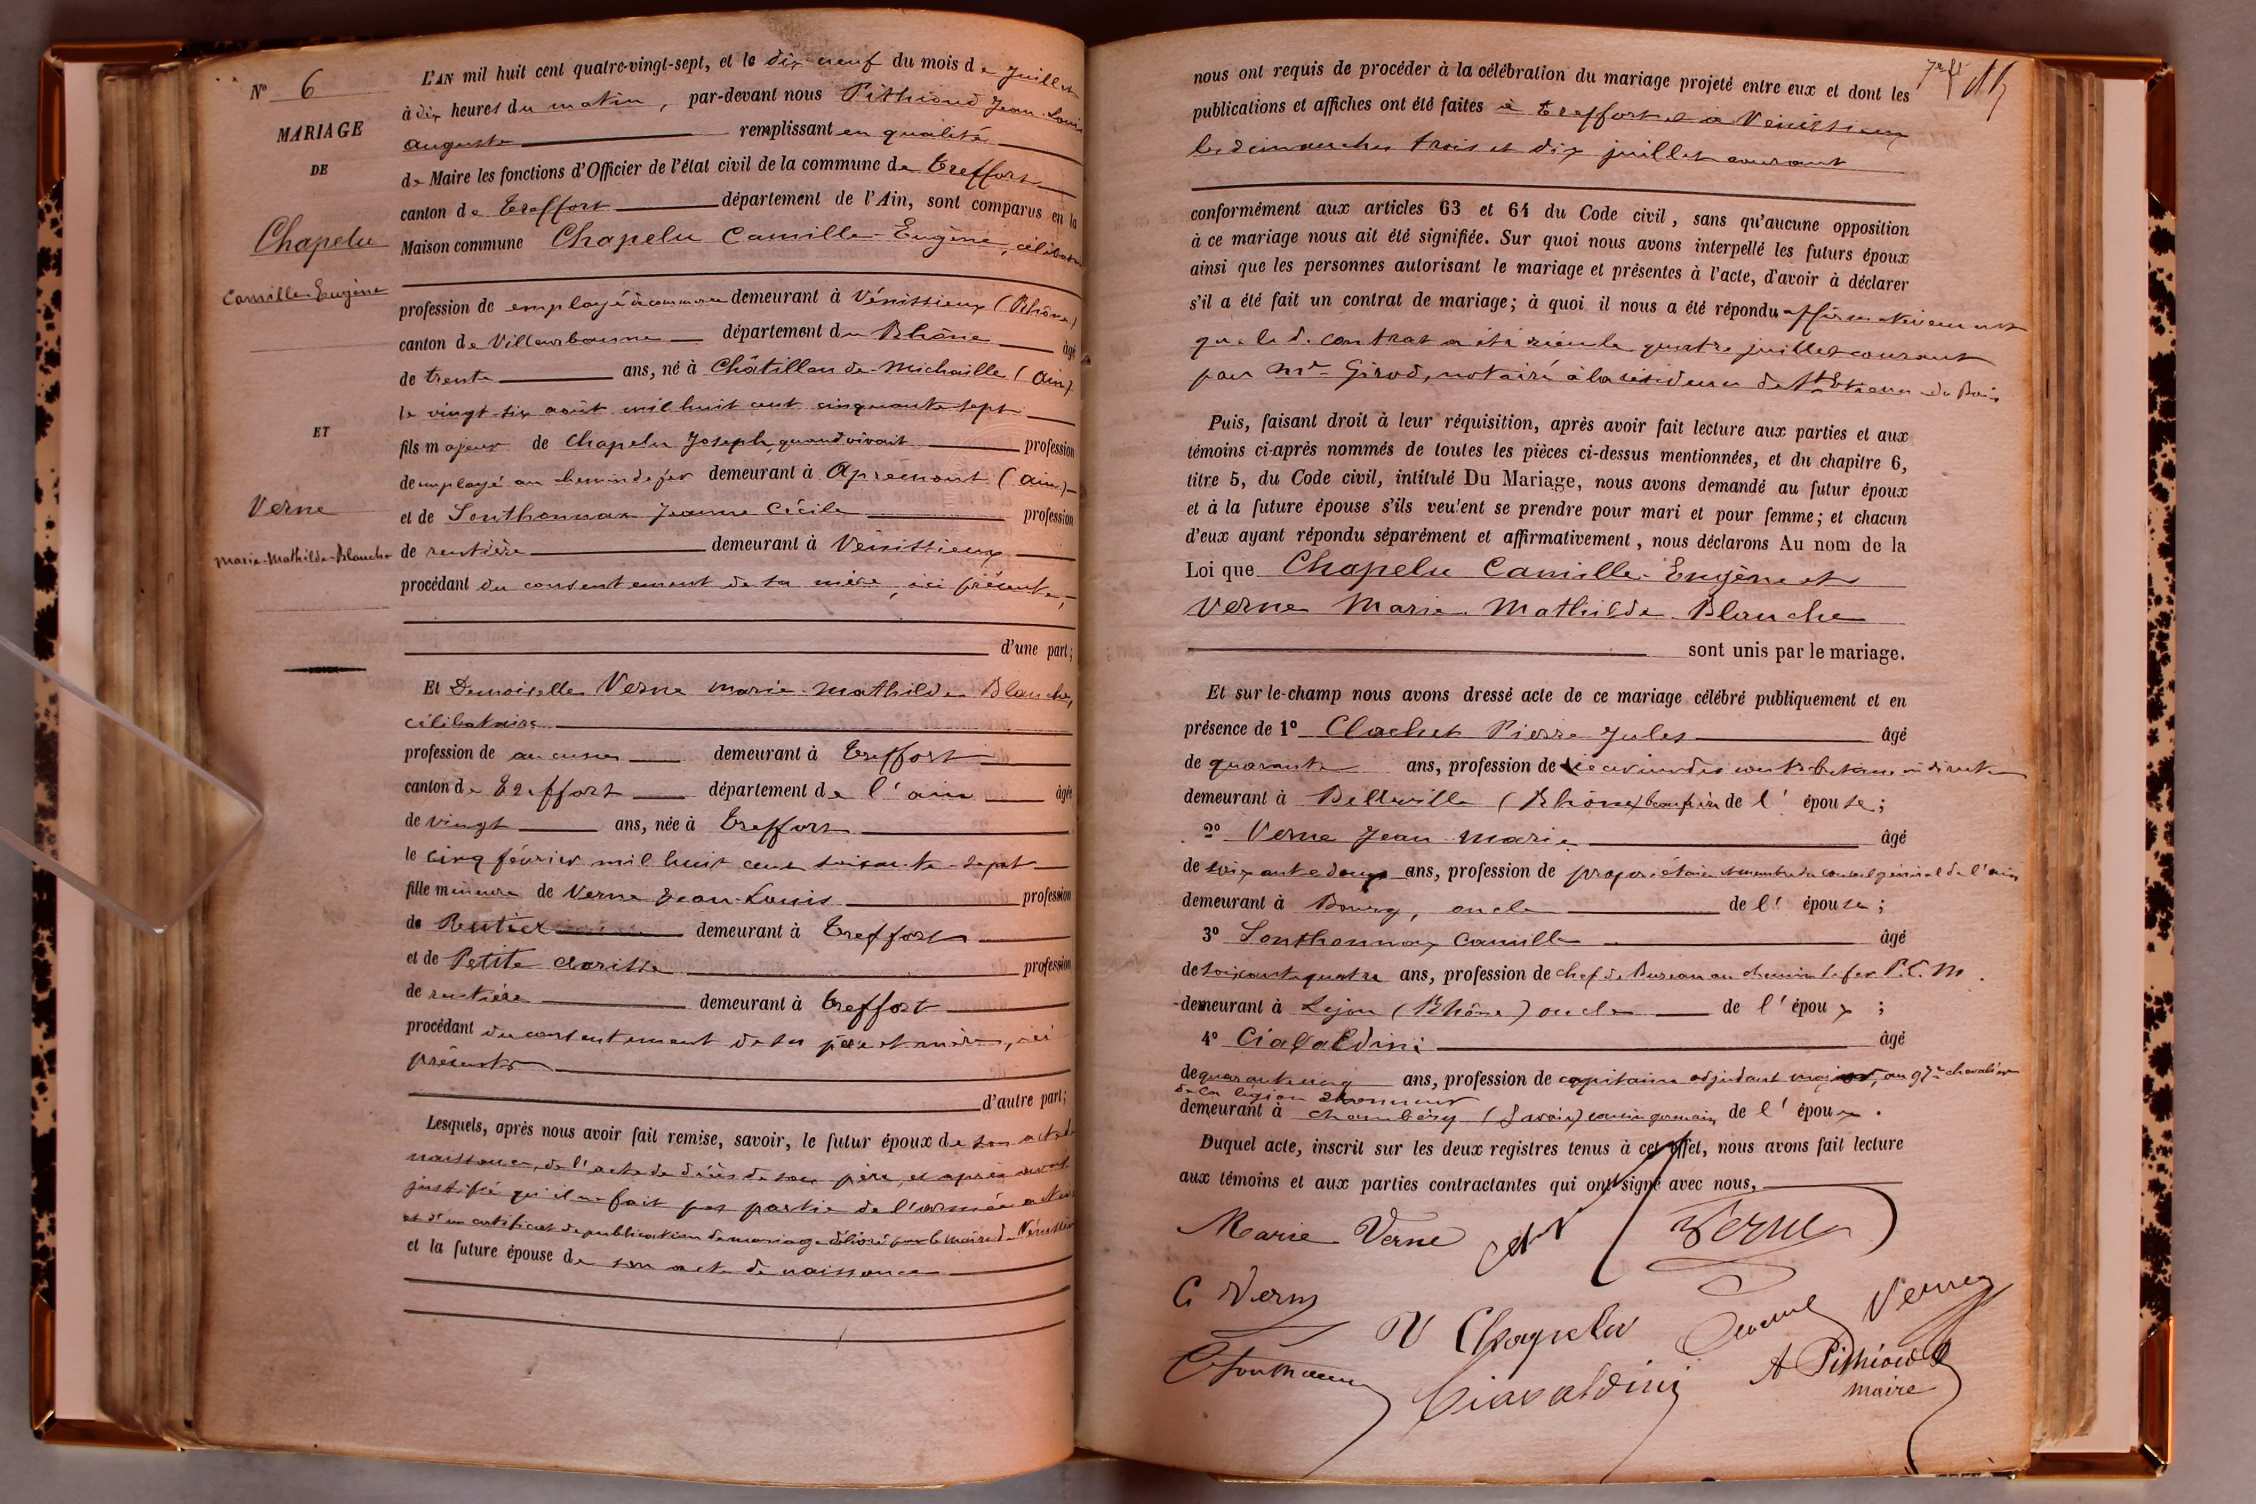 N° 6
MARIAGE
DE
Chapelu
Camille-Eugène
ET
Verne
Marie-Mathilde-Blanche
L'AN mil huit cent quatre-vingt-sept, et le dix neuf du mois de Juillet
à dix heures du matin, par-devant nous Pithioud Jean Louis
auguste remplissant en qualité
de Maire les fonctions d'Officier de l'état civil de la commune de Treffort
canton de Treffort département de l'Ain, sont comparus en la
Maison commune Chapelu Camille-Eugène, célibataire
profession de employé de commerce demeurant à Vénissieux (Rhône)
canton de Villeurbanne département du Rhône âgé
de trente ans, né à Châtillon de Michaille (Ain)
le vingt six août mil huit cent cinquante sept
fils majeur de Chapelu Joseph, quand vivait profession
de employé au chemin de fer demeurant à Apremont (Ain)
et de Sonthonnax Jeanne Cécile profession
de rentière demeurant à Vénissieux
procédant du consentement de sa mère, ici présente,
d'une part;
Et Demoiselle Verne Marie-Mathilde Blanche,
célibataire
profession de aucune demeurant à Treffort
canton de Treffort département de l'ain âgée
de vingt ans, née à Treffort
le cinq février mil huit cent soixante-sept
fille mineure de Verne Jean-Louis profession
de Rentier demeurant à Treffort
et de Petite Clarisse profession
de rentière demeurant à Treffort
procédant du consentement de ses père et mère, ici
présents
d'autre part;
Lesquels, après nous avoir fait remise, savoir, le futur époux de son acte de
naissance, de l'acte de décès de son père, et après avoir
justifié qu'il ne fait pas partie de l'armée active
et d'un certificat de publication de mariage délivré par le maire de Vénissieux
et la future épouse de son acte de naissance
nous ont requis de procéder à la célébration du mariage projeté entre eux et dont les
publications et affiches ont été faites à Treffort et à Vénissieux
les dimanches trois et dix juillet courant
conformément aux articles 63 et 64 du Code civil, sans qu'aucune opposition
à ce mariage nous ait été signifiée. Sur quoi nous avons interpellé les futurs époux
ainsi que les personnes autorisant le mariage et présentes à l'acte, d'avoir à déclarer
s'il a été fait un contrat de mariage; à quoi il nous a été répondu affirmativement
que le d. contrat a été reçu le quatre juillet courant
par Me Girod, notaire à la résidence de St Etienne du Bois
Puis, faisant droit à leur réquisition, après avoir fait lecture aux parties et aux
témoins ci-après nommés de toutes les pièces ci-dessus mentionnées, et du chapitre 6,
titre 5, du Code civil, intitulé Du Mariage, nous avons demandé au futur époux
et à la future épouse s'ils veulent se prendre pour mari et pour femme; et chacun
d'eux ayant répondu séparément et affirmativement, nous déclarons Au nom de la
Loi que Chapelu Camille-Eugène et
Verne Marie-Mathilde-Blanche
sont unis par le mariage.
Et sur le-champ nous avons dressé acte de ce mariage célébré publiquement et en
présence de 1° Clachet Pierre Jules âgé
de quarante ans, profession de receveur des contributions indirectes
demeurant à Belleville (Rhône) beau-frère de l'épouse;
2° Verne Jean-Marie âgé
de soixante douze ans, profession de propriétaire et membre du conseil général de l'ain
demeurant à Bourg, oncle de l'épouse;
3° Sonthonnax Camille âgé
de soixante quatre ans, profession de chef de Bureau au chemin de fer P.L.M.
demeurant à Lyon (Rhône) oncle de l'époux;
4° Ciavaldini âgé
de quarante cinq ans, profession de capitaine adjudant major, au 97e chevalier
de la légion d'honneur
demeurant à Chambéry (Savoie) cousin germain de l'époux.
Duquel acte, inscrit sur les deux registres tenus à cet effet, nous avons fait lecture
aux témoins et aux parties contractantes qui ont signé avec nous,
Marie Verne Verne
C. Verne
V Chapelu Verne
Sonthonnax Ciavaldini A Pithioud
maire